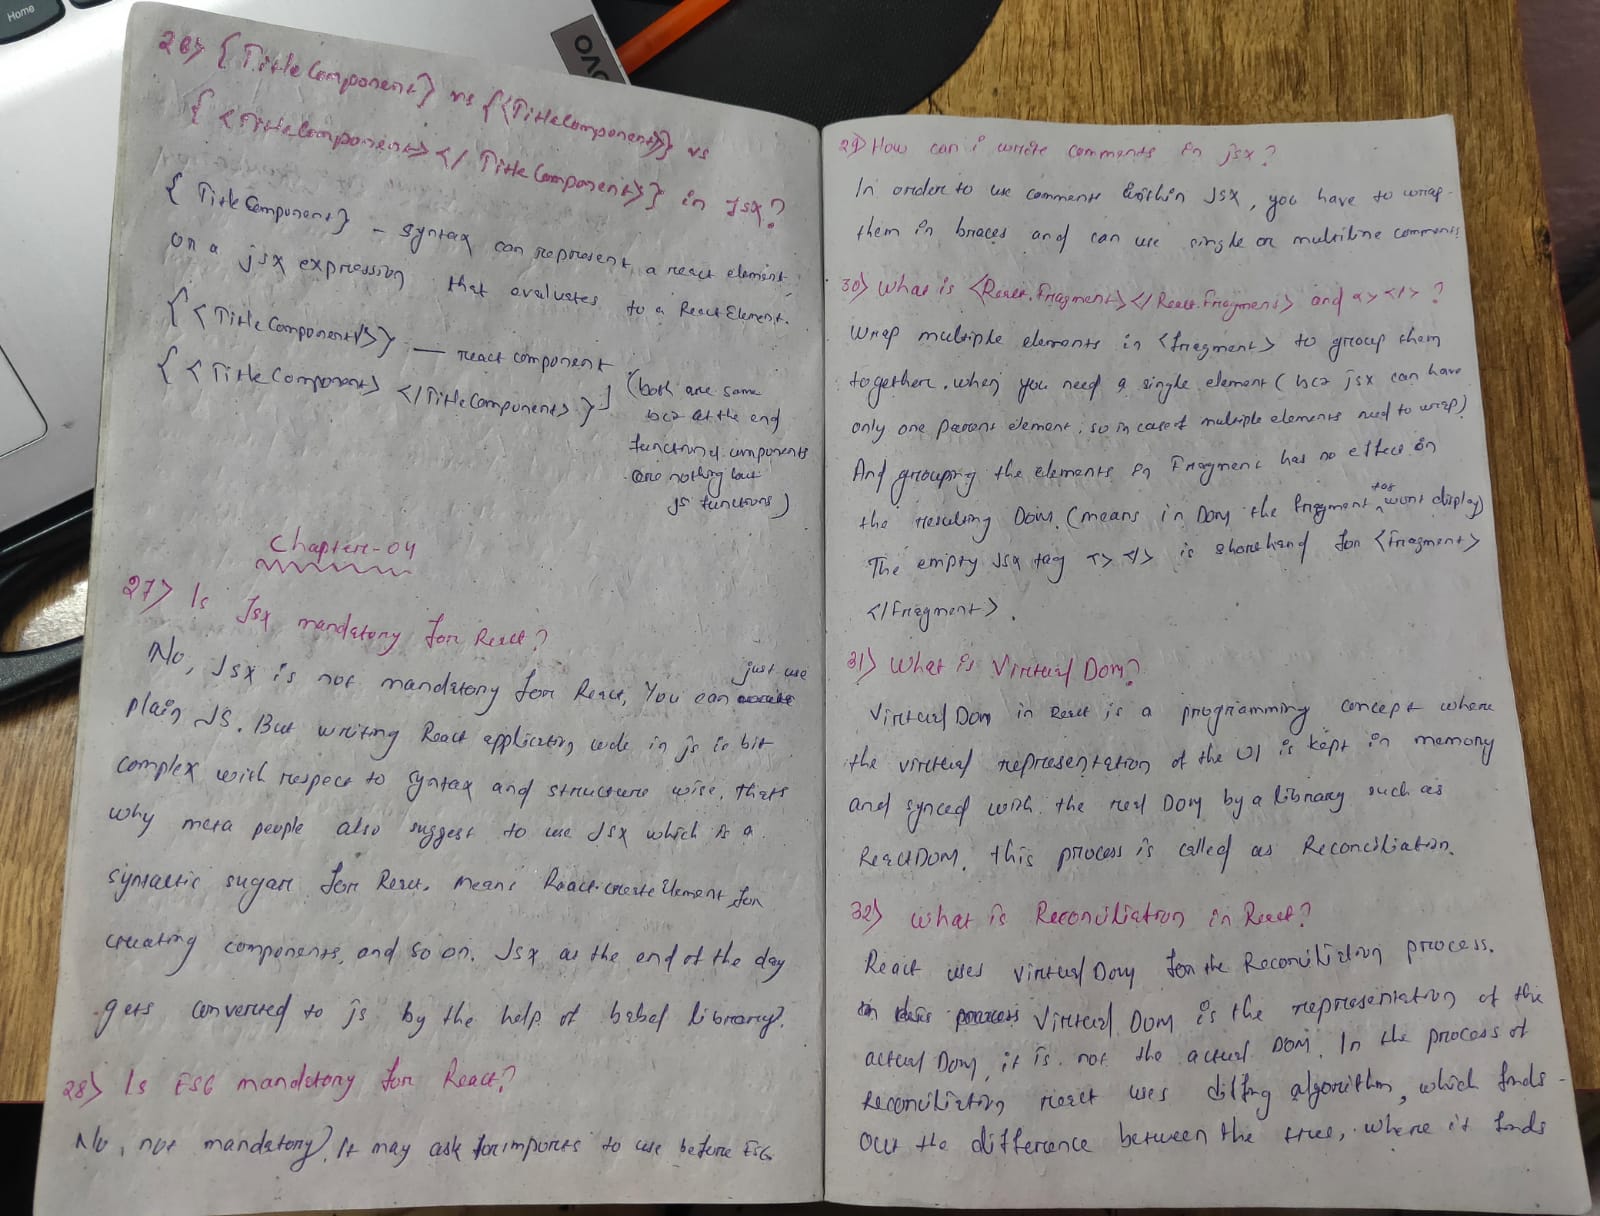 Home
26> {TitleComponent} vs {<TitleComponent/>} vs
{<TitleComponent></TitleComponent>} in Jsx?
{TitleComponent} - syntax can represent a react element
or a jsx expression that evaluates to a ReactElement.
{<TitleComponent/>} — react component
{<TitleComponent> </TitleComponent>}
(both are same
bcz at the end
functional components
are nothing but
js functions)
Chapter-04
27> Is Jsx mandatory for React?
No, Jsx is not mandatory for React, You can just use
plain JS. But writing React application code in js is bit
complex with respect to syntax and structure wise, thats
why meta people also suggest to use Jsx which is a
syntactic sugar for React. means React.createElement for
creating components, and so on. Jsx at the end of the day
gets converted to js by the help of babel library.
28> Is ES6 mandatory for React?
No, not mandatory. It may ask for imports to use before ES6
29> How can i write comments in jsx?
In order to use comments within JSX, you have to wrap
them in braces and can use single or multiline comments
30> What is <React.Fragment></React.Fragment> and <> </> ?
Wrap multiple elements in <fragment> to group them
together. when you need a single element (bcz jsx can have
only one parent element, so in case of multiple elements need to wrap)
And grouping the elements in Fragment has no effect on
the resulting Dom. (means in Dom the fragment tag wont display)
The empty Jsx tag <> </> is shorthand for <fragment>
</fragment>.
31> What is Virtual Dom?
Virtual Dom in React is a programming concept where
the virtual representation of the UI is kept in memory
and synced with the real Dom by a library such as
ReactDOM. this process is called as Reconciliation.
32> What is Reconciliation in React?
React uses virtual Dom for the Reconciliation process.
Virtual DOM is the representation of the
actual Dom, it is not the actual DOM. In the process of
reconciliation react uses diffing algorithm, which finds
out the difference between the trees, where it finds